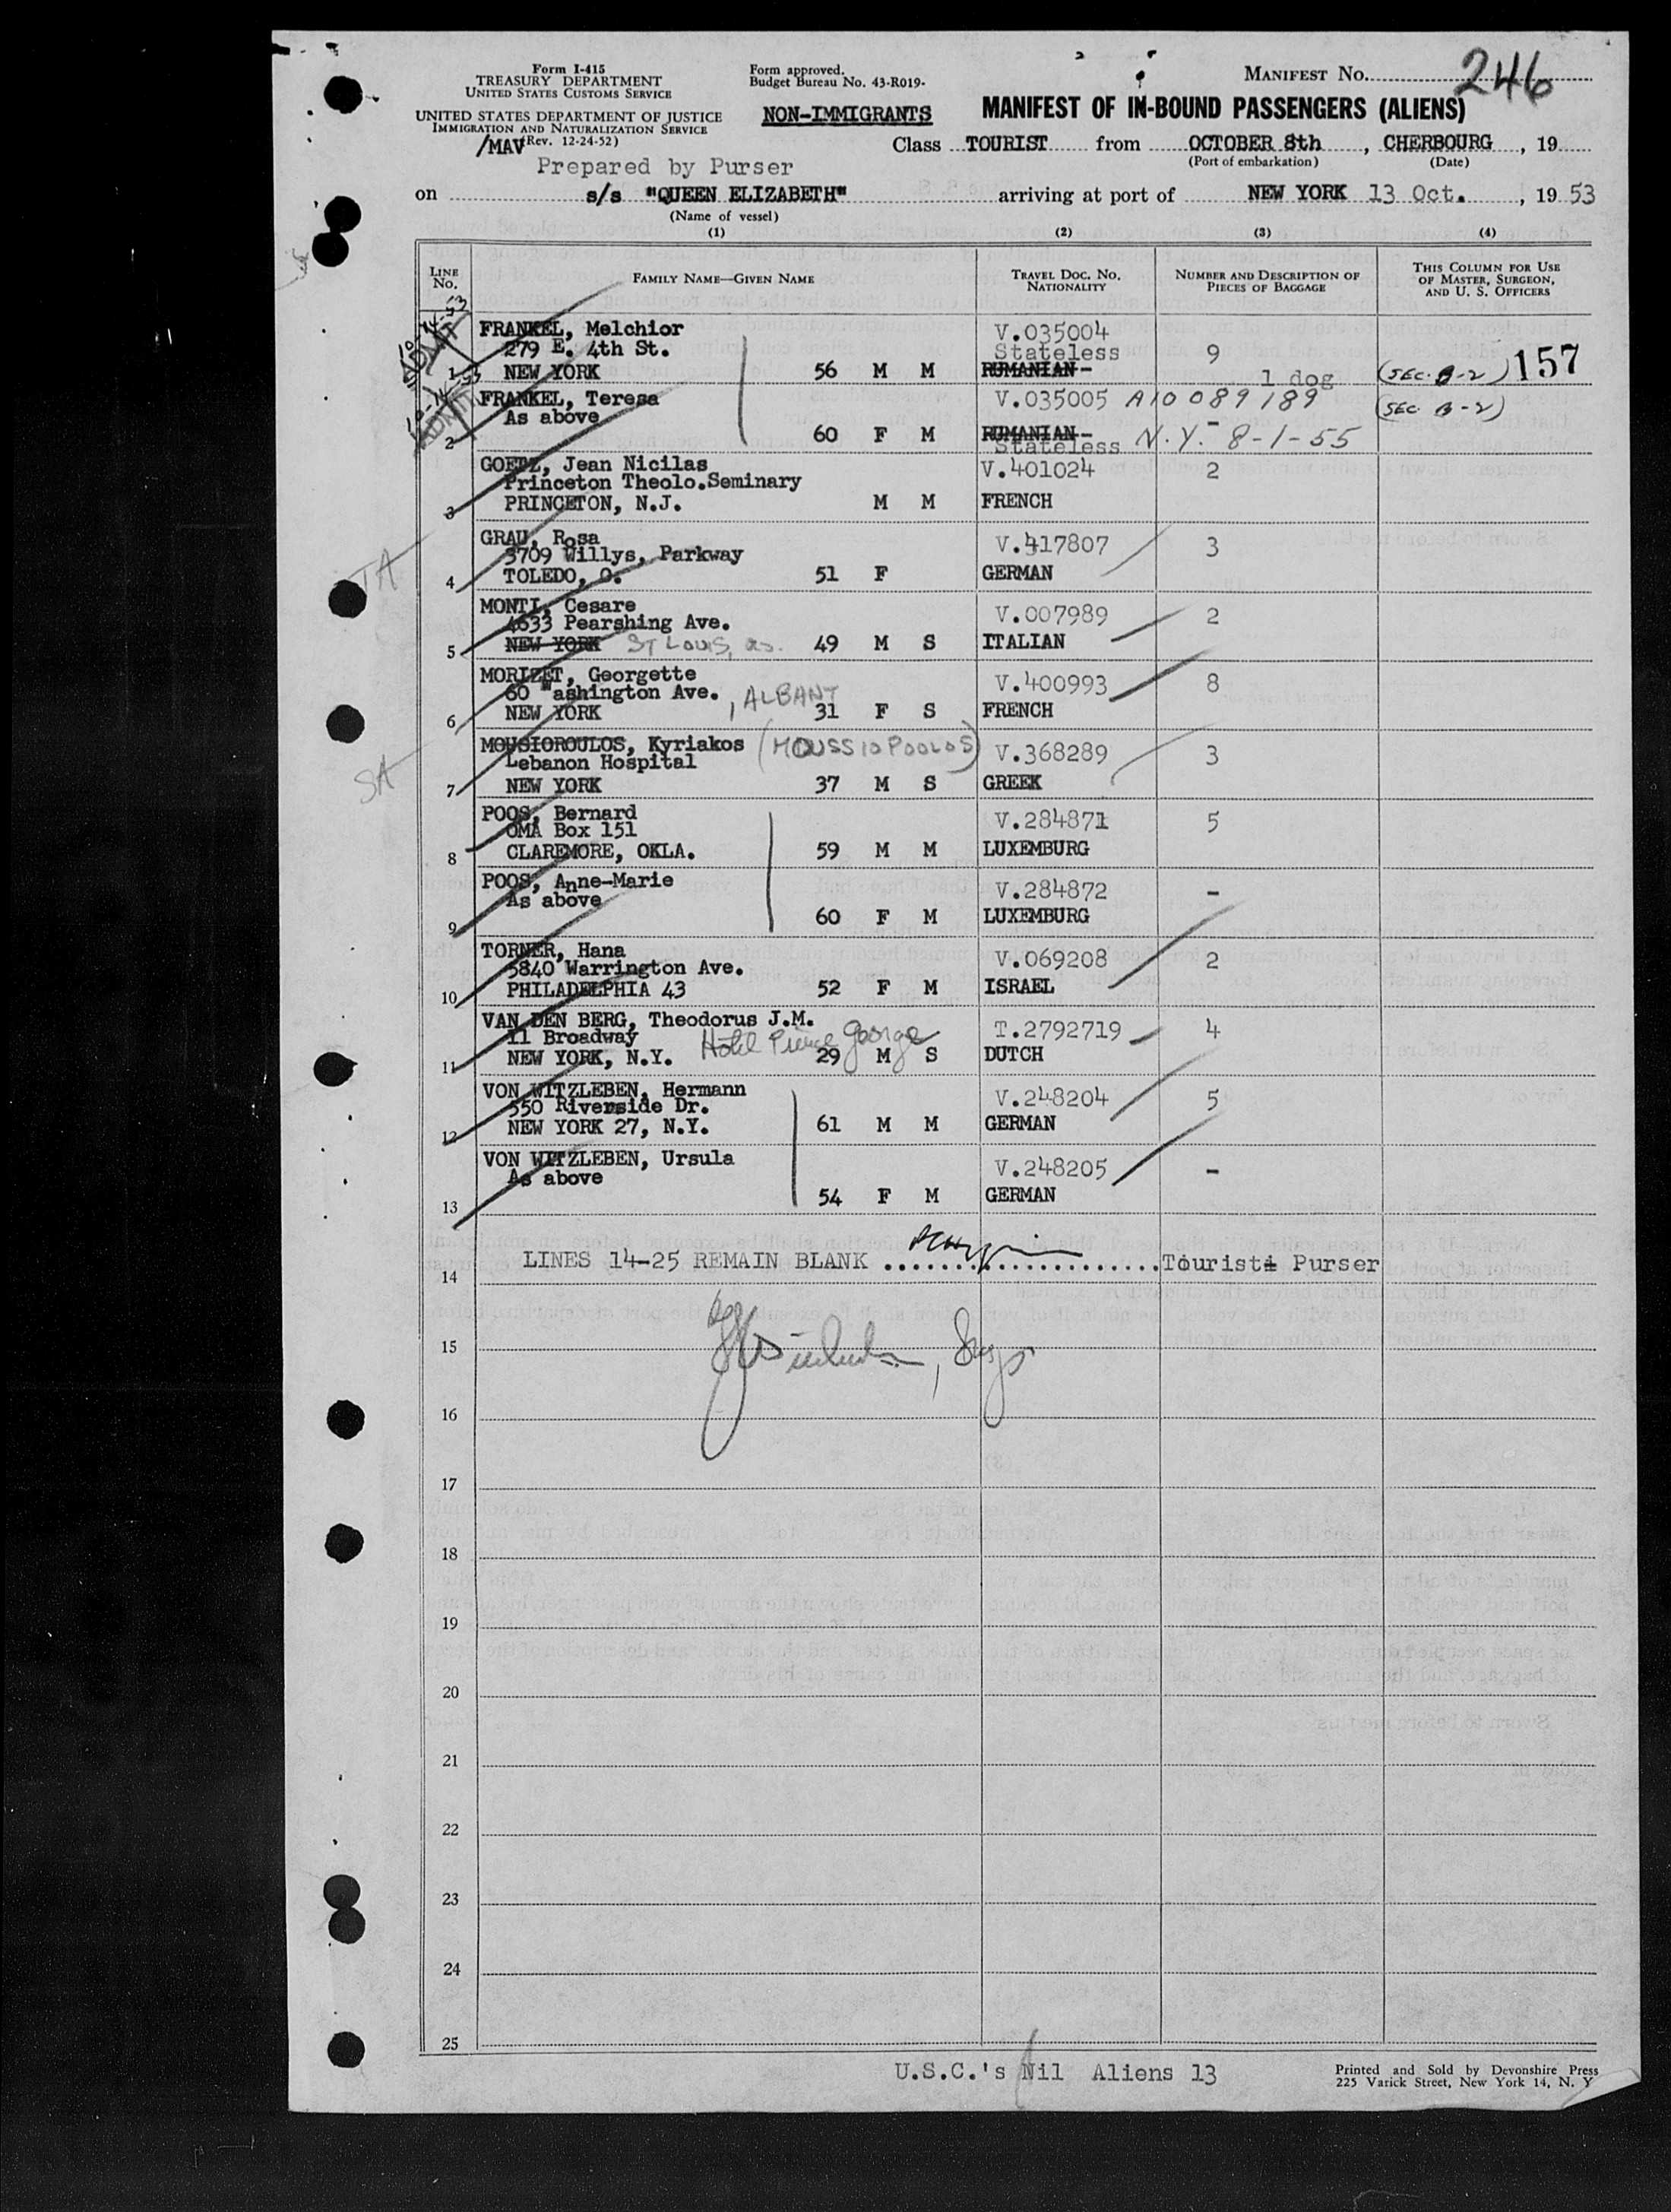 Form I-415
TREASURY DEPARTMENT
UNITED STATES CUSTOMS SERVICE
UNITED STATES DEPARTMENT OF JUSTICE
IMMIGRATION AND NATURALIZATION SERVICE
/MAV (Rev. 12-24-52)
Form approved.
Budget Bureau No. 43-R019-
NON-IMMIGRANTS
MANIFEST NO. 246
MANIFEST OF IN-BOUND PASSENGERS (ALIENS)
Class TOURIST from OCTOBER 8th, CHERBOURG, 19
(Port of embarkation) (Date)
Prepared by Purser
on s/s "QUEEN ELIZABETH" arriving at port of NEW YORK 13 Oct., 19 53
(Name of vessel)
(1) (2) (3) (4)
LINE NO.
FAMILY NAME—GIVEN NAME
TRAVEL DOC. NO. NATIONALITY
NUMBER AND DESCRIPTION OF PIECES OF BAGGAGE
THIS COLUMN FOR USE OF MASTER, SURGEON, AND U. S. OFFICERS
ADMIT
FRANKEL, Melchior V.035004
279 E. 4th St. Stateless 9
1 NEW YORK 56 M M RUMANIAN- 1 dog (SEC. B-2) 157
ADMIT
FRANKEL, Teresa V.035005 A10 089 189 (SEC. B-2)
As above -
2 60 F M RUMANIAN- N.Y. 8-1-55
Stateless
GOETZ, Jean Nicilas V.401024 2
Princeton Theolo.Seminary
3 PRINCETON, N.J. M M FRENCH
GRAU, Rosa V.417807 3
3709 Willys, Parkway
4 TOLEDO, O. 51 F GERMAN
TA
MONTI, Cesare V.007989 2
4633 Pearshing Ave.
5 NEW YORK ST LOUIS, 49 M S ITALIAN
MORIZET, Georgette V.400993 8
60 Washington Ave. , ALBANY
6 NEW YORK 31 F S FRENCH
MOUSIOROULOS, Kyriakos (MOUSSIOPOULOS) V.368289 3
Lebanon Hospital
7 NEW YORK 37 M S GREEK
SA
POOS, Bernard V.284871 5
OMA Box 151
8 CLAREMORE, OKLA. 59 M M LUXEMBURG
POOS, Anne-Marie V.284872 -
As above
9 60 F M LUXEMBURG
TORNER, Hana V.069208 2
5840 Warrington Ave.
10 PHILADELPHIA 43 52 F M ISRAEL
VAN DEN BERG, Theodorus J.M. T.2792719 4
11 Broadway Hotel Prince George
11 NEW YORK, N.Y. 29 M S DUTCH
VON WITZLEBEN, Hermann V.248204 5
550 Riverside Dr.
12 NEW YORK 27, N.Y. 61 M M GERMAN
VON WITZLEBEN, Ursula V.248205 -
As above
13 54 F M GERMAN
LINES 14-25 REMAIN BLANK ..................... Tourist Purser
14
15
16
17
18
19
20
21
22
23
24
25
U.S.C.'s Nil Aliens 13
Printed and Sold by Devonshire Press
225 Varick Street, New York 14, N. Y